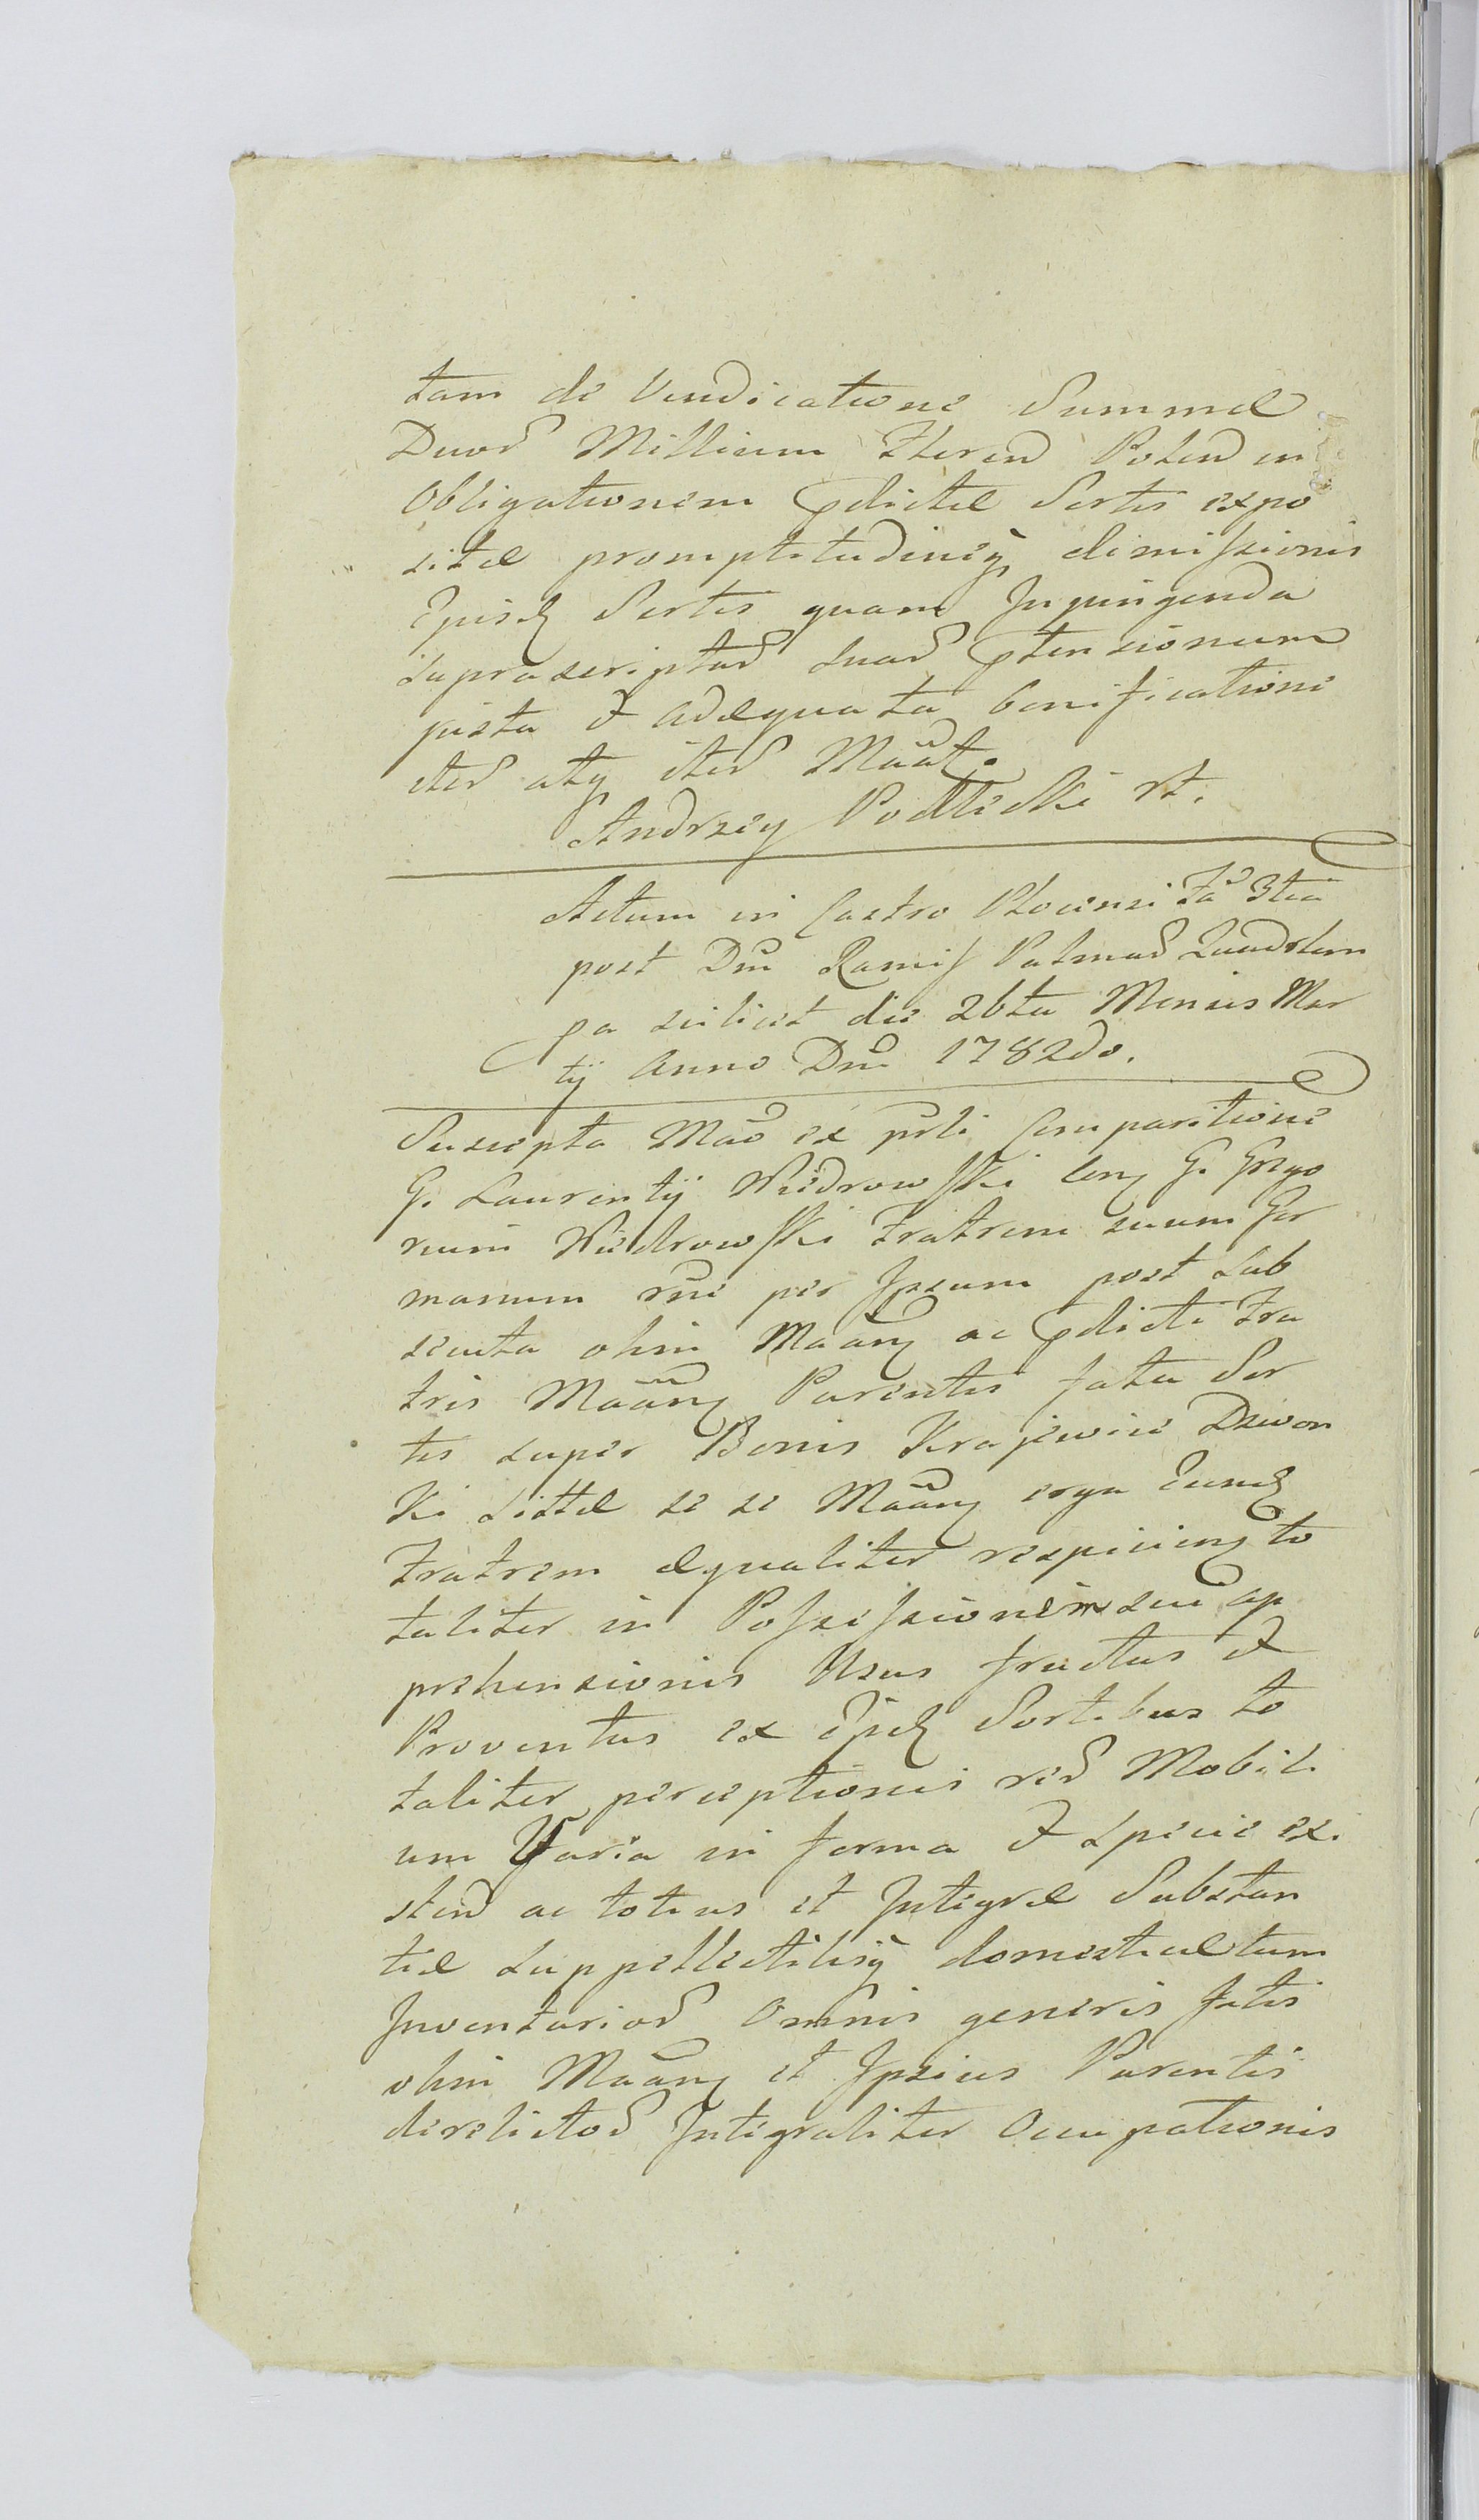 tam de Vendicatione Summæ
Duor Millium Floren Polon in
Obligationem pdictæ Sortis expo
sitæ promptitudineq dimissionis
Ejusd Sortis quam Inpingenda
supra scriptar suar ptensionum
justa et adæquata bonificatione
iter atq iter Maat.
Andrzey Podlidki
Actum in Castro Plocensi Fa 3tia
post Dm Ramis Palmar Quadrlem
pa scilicet die 26ta Mensis Mar
tij Anno Dni 1782do.
Suscepta Mao ex psli Comparitione
G. Laurentij Niedrowski con G. Grego
rium Niedrowski Fratrem suum Ger
manum rne per Ipsum post Sub
secuta olim Maan ac pdicti Fra
tris Maan Parentis fata Sor
tis super Bonis Krajewice Dzwon
ki Sittæ se se Maan erga Eund
Fratrem æqualiter respicien to
taliter in Possessionem sui ap
prehensionis Usus fructus et
Proventus ex ijsd Sortibus to
taliter perceptionis rer Mobili
um Varia in forma et Specie exi
sten ac totius et Integræ Substan
tiæ Suppellectilisq domesticæ tum
Inventarior Omnis generis fatis
olim Maan et Ipsius Parentis
derelictor Integraliter Occupationis